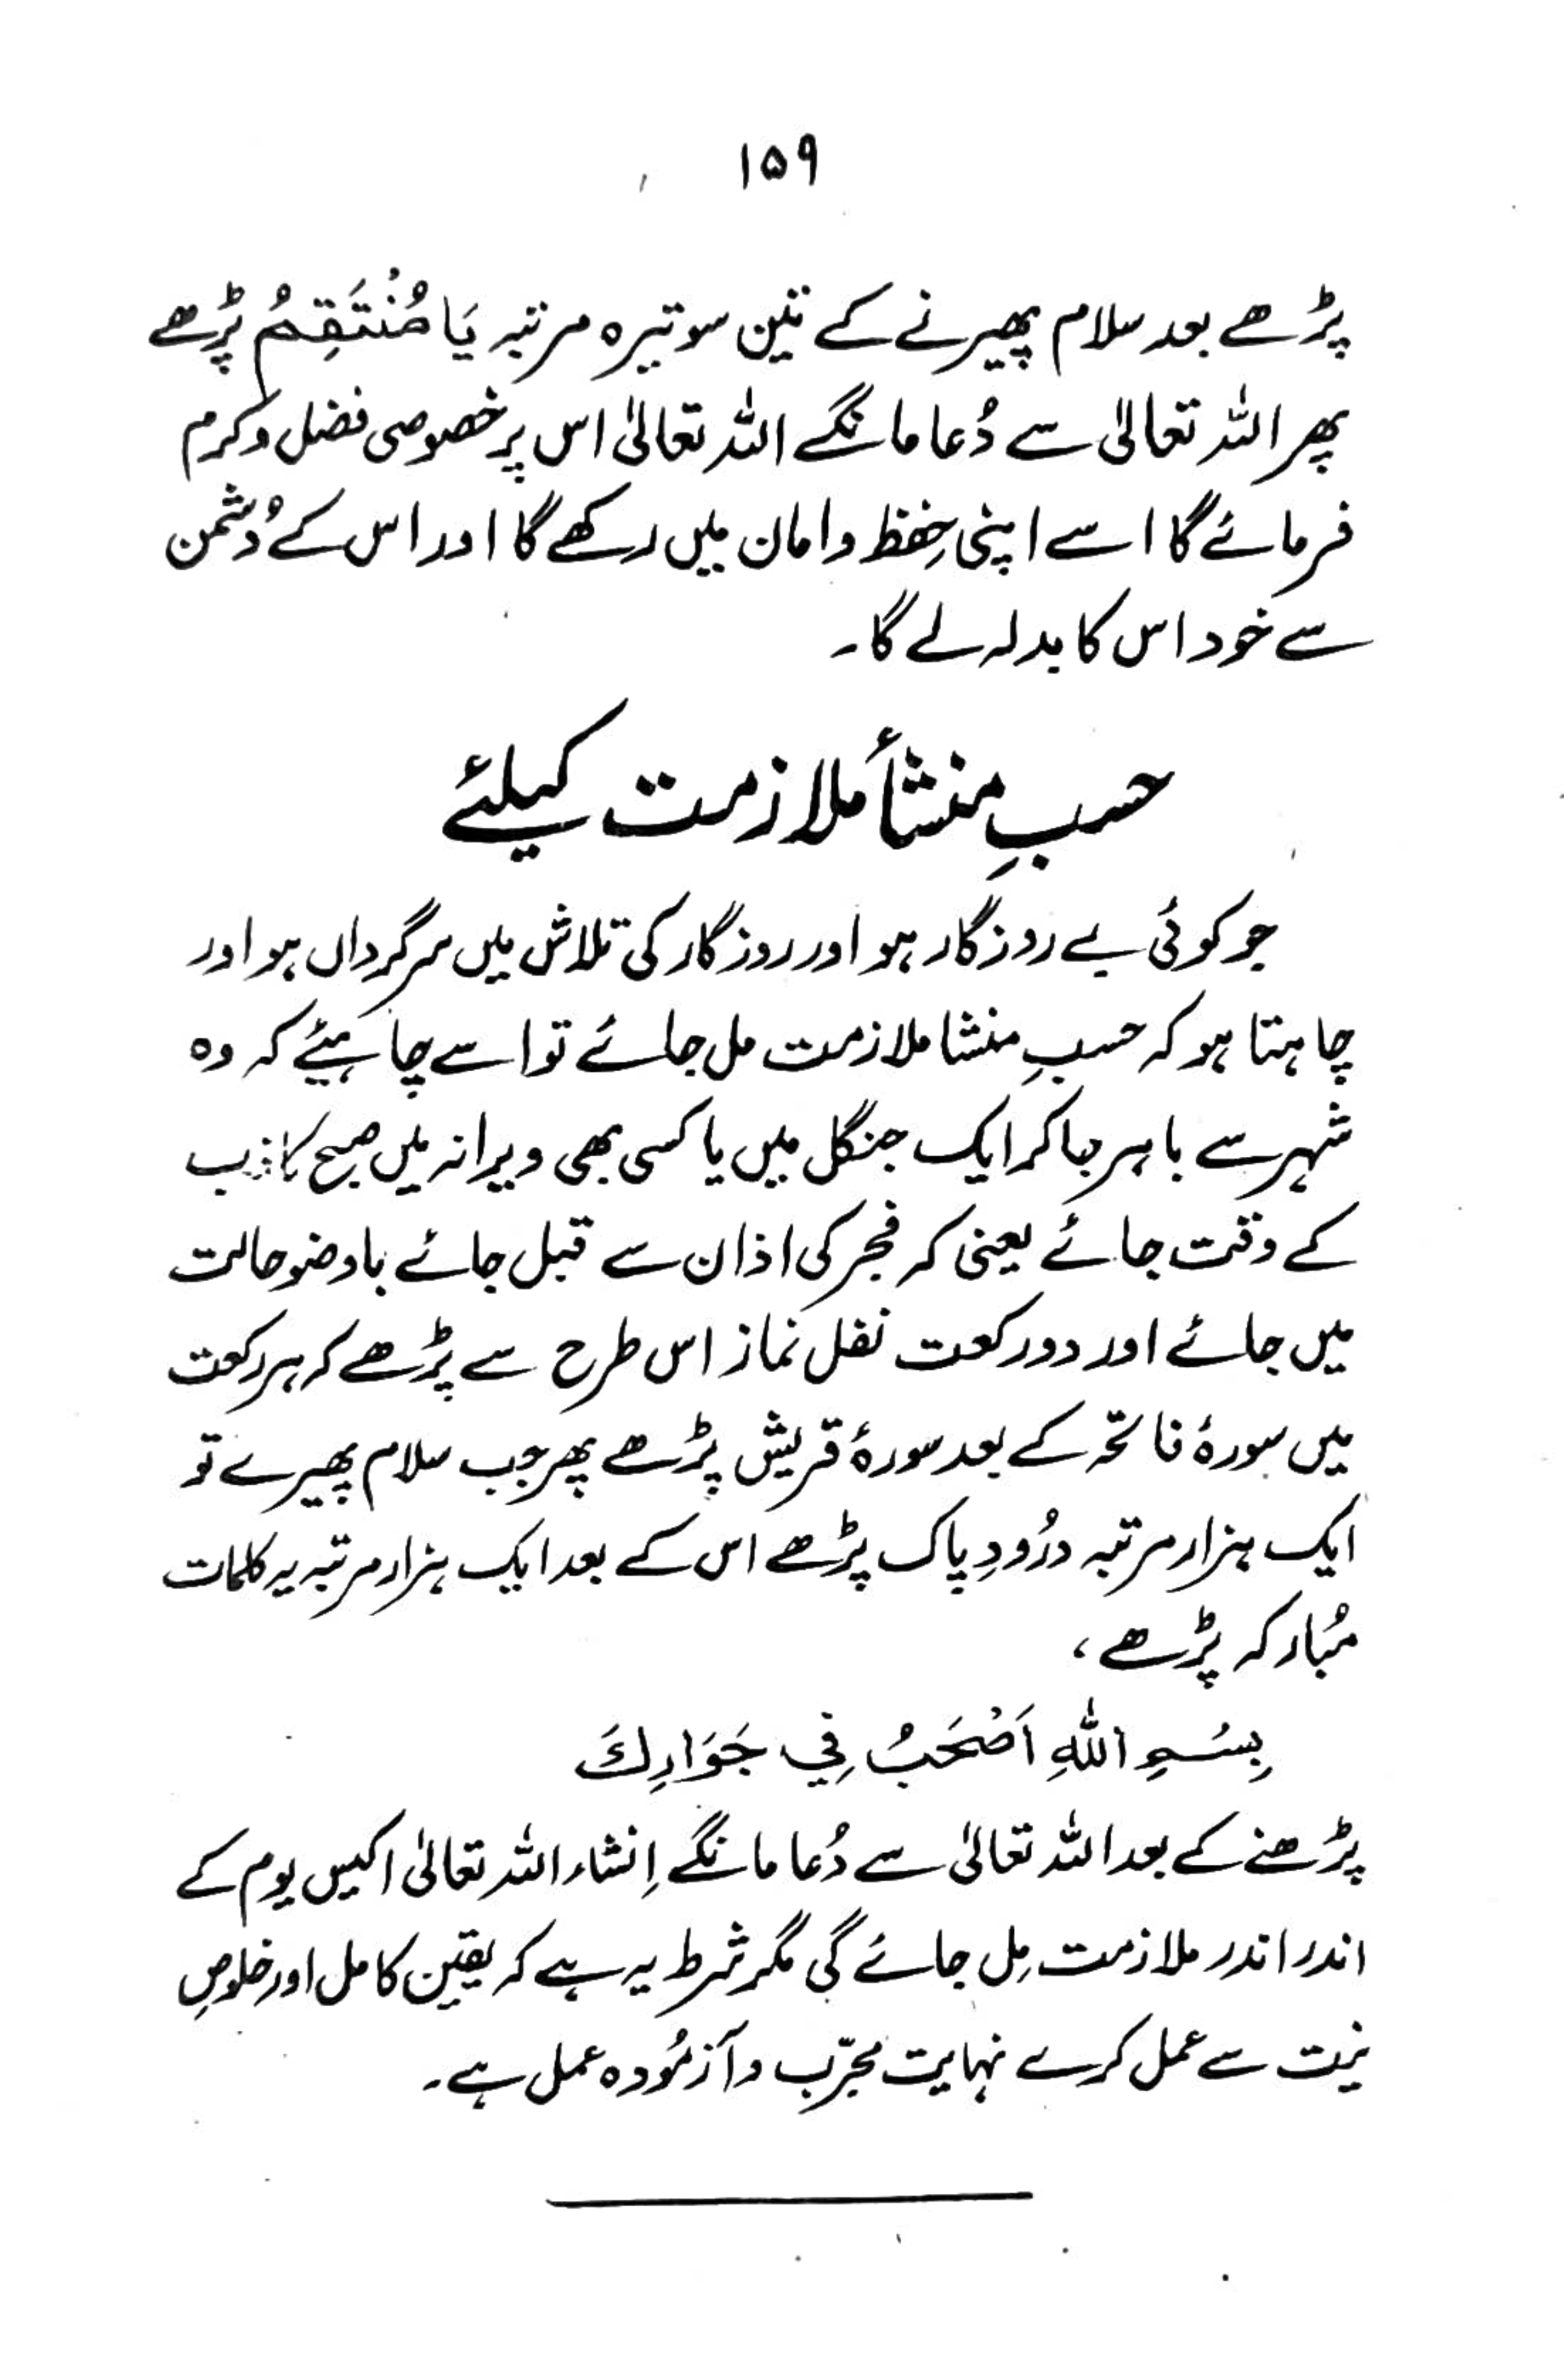 ۱۵۹
پڑھے بعد سلام پھیرنے کے تین سو تیرہ مرتبہ یَا مُنْتَقِمُ پڑھے
پھر اللہ تعالیٰ سے دُعا مانگے اللہ تعالیٰ اس پر خصوصی فضل و کرم
فرمائے گا اسے اپنی حِفظ و امان میں رکھے گا اور اس کے دُشمن
سے خود اس کا بدلہ لے گا۔
حسبِ منشأ ملازمت کیلئے
جو کوئی بے روزگار ہو اور روزگار کی تلاش میں سرگرداں ہو اور
چاہتا ہو کہ حسبِ منشا ملازمت مل جائے تو اسے چاہئیے کہ وہ
شہر سے باہر جا کر ایک جنگل میں یا کسی بھی ویرانہ میں صبح کاذب
کے وقت جائے یعنی کہ فجر کی اذان سے قبل جائے باوضو حالت
میں جائے اور دو رکعت نفل نماز اس طرح سے پڑھے کہ ہر رکعت
میں سورۂ فاتحہ کے بعد سورۂ قریش پڑھے پھر جب سلام پھیرے تو
ایک ہزار مرتبہ درُودِ پاک پڑھے اس کے بعد ایک ہزار مرتبہ یہ کلمات
مُبارکہ پڑھے،
بِسْمِ اللهِ اَصْحَبُ فِي جَوَارِكَ
پڑھنے کے بعد اللہ تعالیٰ سے دُعا مانگے اِنشاء اللہ تعالیٰ اکیس یوم کے
اندر اندر ملازمت مِل جائے گی مگر شرط یہ ہے کہ یقین کامل اور خلوصِ
نیت سے عمل کرے نہایت مجرّب و آزمُودہ عمل ہے۔